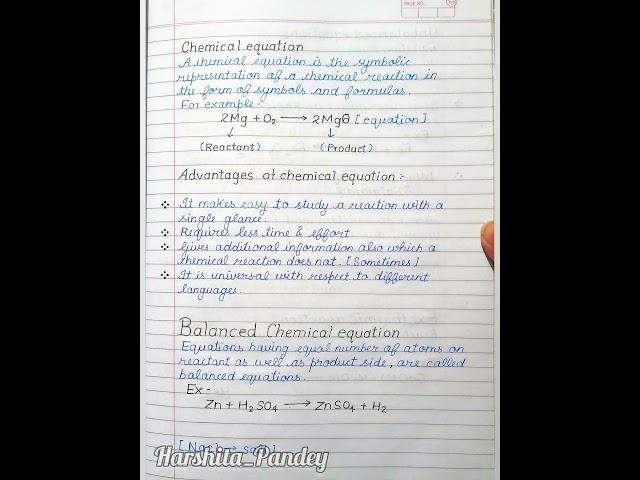 PAGE NO.
Chemical equation
A chemical equation is the symbolic
representation of a chemical reaction in
the form of symbols and formulas.
For example-
2Mg + O₂ → 2MgO [equation]
↓ ↓
(Reactant) (Product)
Advantages of chemical equation:-
❖ It makes easy to study a reaction with a
single glance.
❖ Requires less time & effort
❖ Gives additional information also which a
chemical reaction does not. [Sometimes]
❖ It is universal with respect to different
languages.
Balanced Chemical equation
Equations having equal number of atoms on
reactant as well as product side, are called
balanced equations.
Ex-
Zn + H₂SO₄ → ZnSO₄ + H₂
Harshita_Pandey